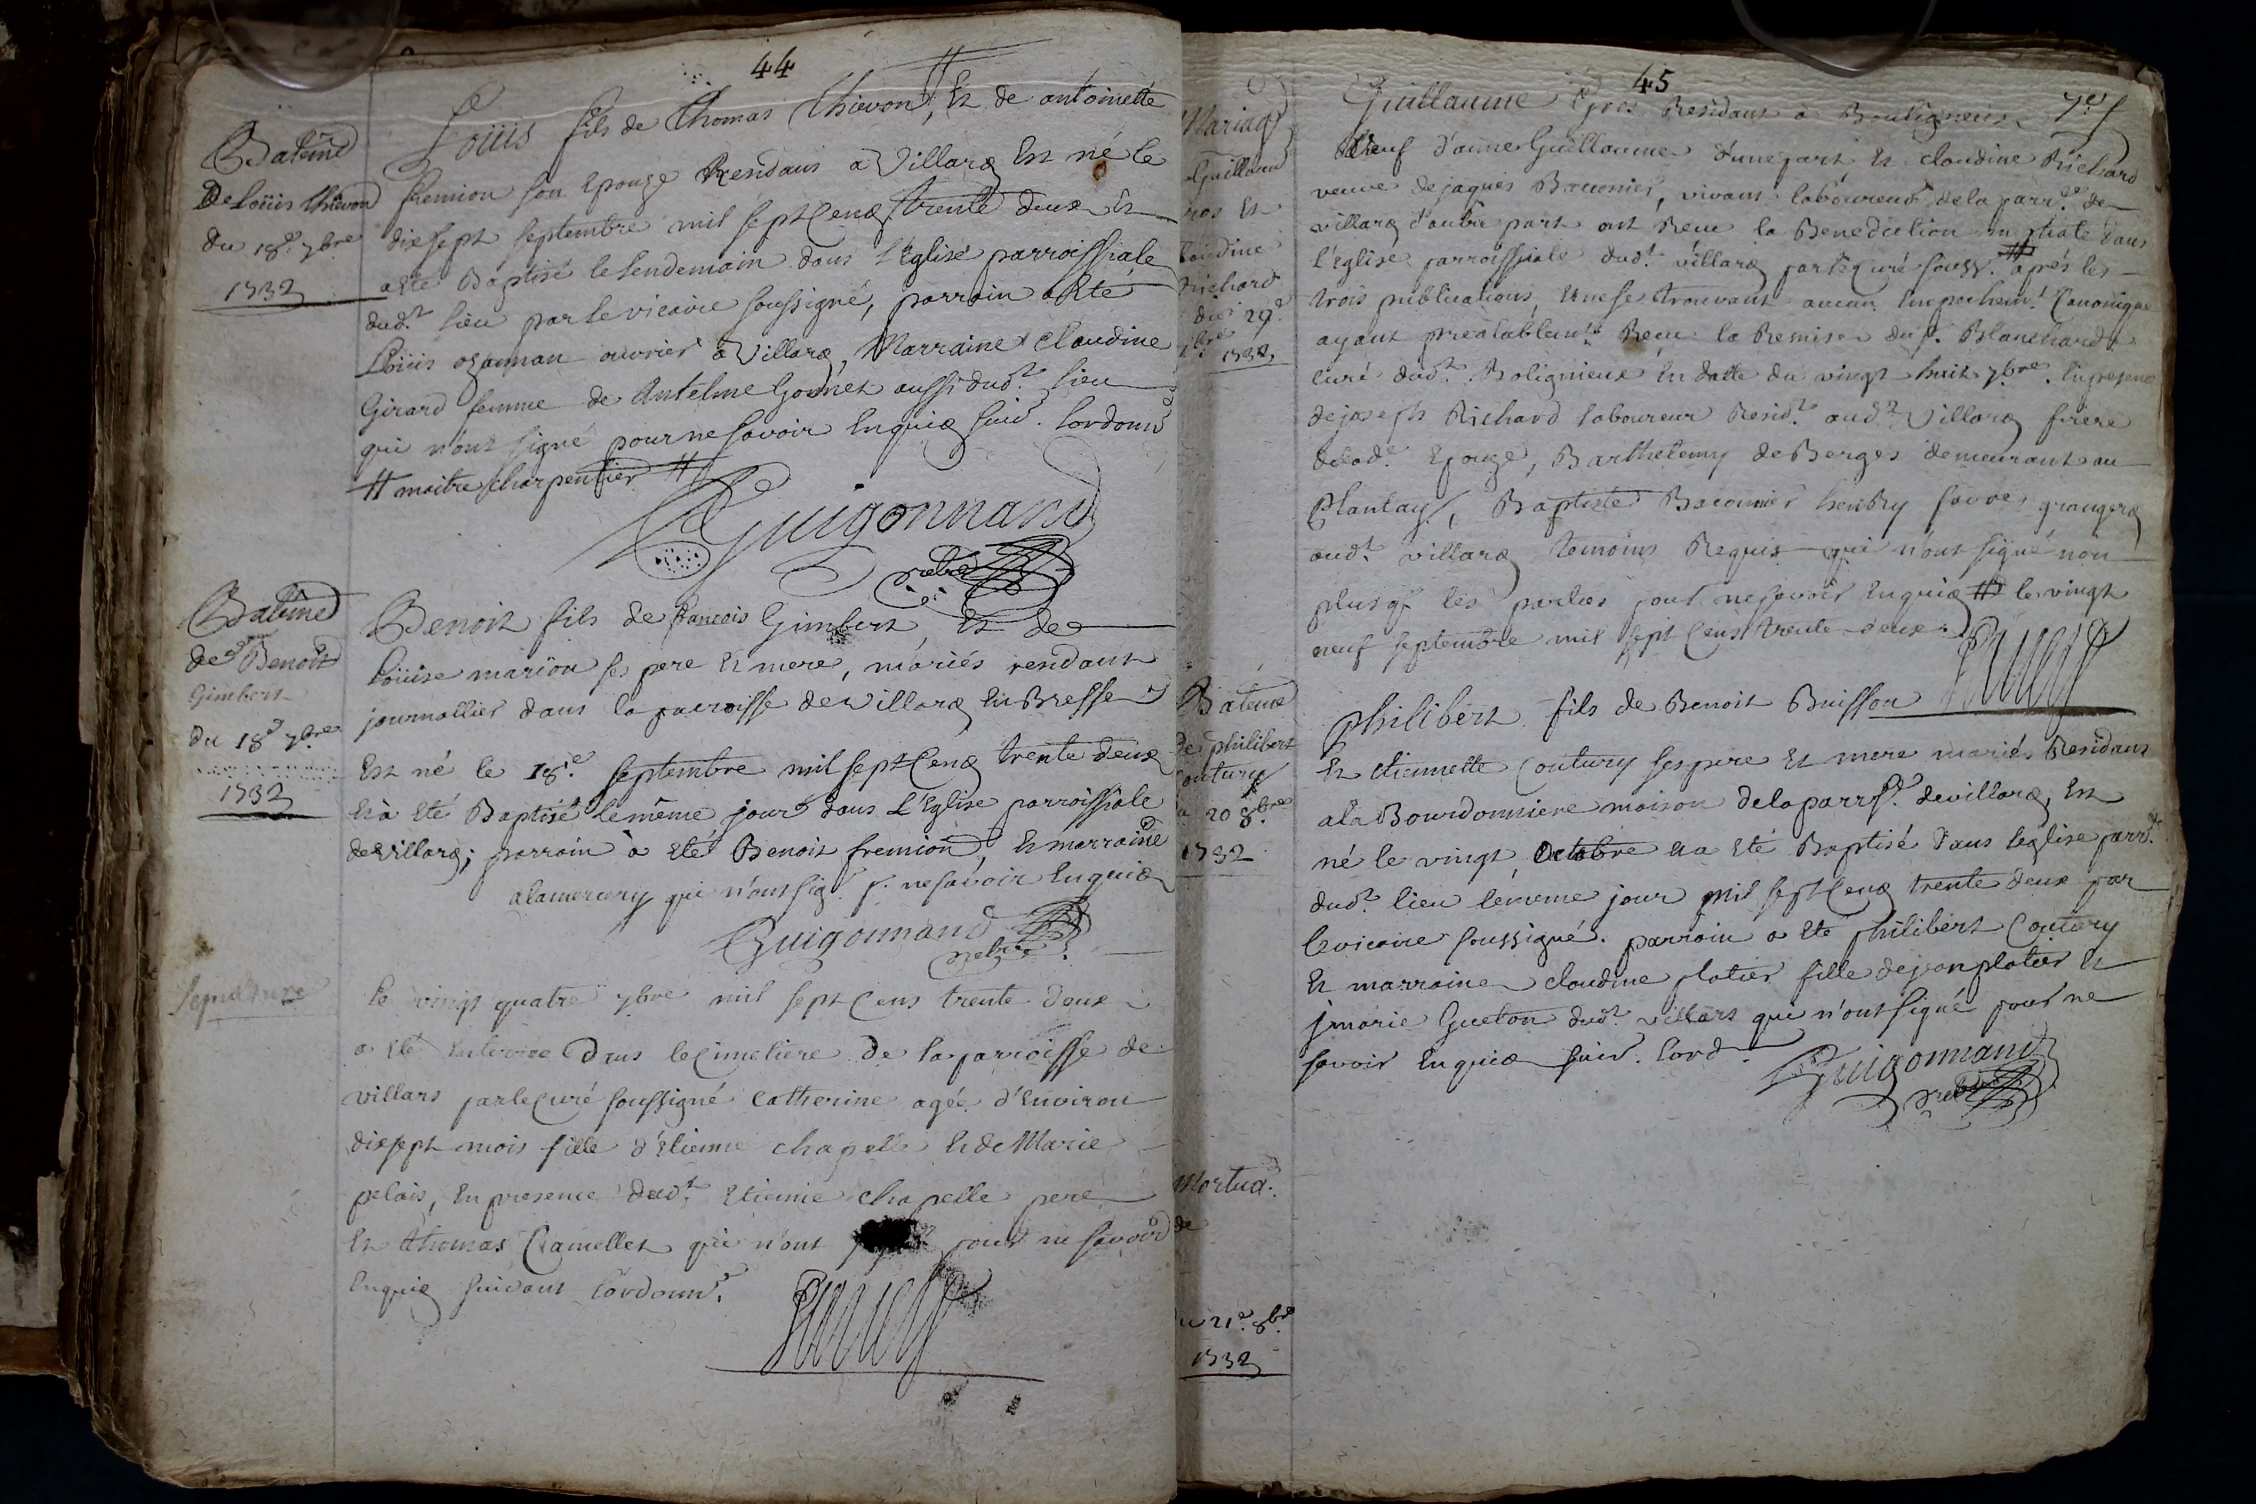 44
Batême
De Loüis Thievon
du 18e 7bre
1732
Loüis fils de Thomas Thievon # Et de antoinette
fremion son Epouze Residans a Villars Est né le
dixsept septembre mil sept Cens trente deux Et
a Eté Baptisé le lendemain dans l'Eglise parroissiale
dudt lieu par le vicaire soussigné, parrain a Eté
Loüis ozannan ouvrier a Villars, Marraine Claudine
Girard femme de Antelme Gonnet aussi dudt lieu
qui n'ont signé pour ne savoir Enquis suivt. Lordonn
# maitre charpentier #
Guigonnand
prebre
Batême
de Benoit
Gimbert
du 18e 7bre
1732
Benoit fils de francois Gimbert, Et de
Loüise marion ses pere Et mere, mariés residant
journallier dans la parroisse de villars En Bresse
Est né le 18e septembre mil sept Cens trente deux
Et à Eté Baptisé le même jour dans L'Eglise parroissiale
de villars; parrain à Eté Benoit fremion, Et marraine
qui n'ont sigé p. ne savoir Enquis
Guigonnand
prebre
Sepulture
Le vingt quatre 7bre mil sept Cens trente deux
a Eté Enterrée Dans le Cimetiere de la parroisse de
villars par le Curé soussigné Catherine agée d'Environ
dixsept mois fille d'Etienne chapelle Et de Marie
pelais, En presence dudt Etienne chapelle pere
Et Thomas Chamellet qui n'ont pour ne savoir de
Enquis suivant L'ordonn.
45
Mariage
Guillaume
Gros Et
Claudine
Richard
du 29e
7bre 1732
Guillaume Gros Residant a Bouligneux
veuf d'anne Guillaume d'une part Et claudine Richard
veuve de jaques Baconnier, vivant laboureur de la parre de
villars d'autre part ont Reçu la Benediction nuptiale dans
l'Eglise parroissiale dudt villars par le Curé souss. # aprés les
trois publications, Et ne se trouvant aucun Empechemt Canonique
ayant prealablemt Reçu la Remise du sr. Blanchard
curé dudt Bolignieux En datte du vingt huit 7bre. En presence
de joseph Richard laboureur Residt audt Villars frere
de lade Epouze, Barthelemy de Berges demeurant au
Plantay, Baptiste Baconnier henry favre grangers
audt villars temoins Requis qui n'ont signé non
plus q les parties pour ne savoir Enquis # le vingt
neuf septembre mil sept Cens trente deux
Batême
de philibert
Coutury
du 20 8bre
1732
philibert fils de Benoit Buisson
Et etiennette Coutury ses pere Et mere mariés Residans
a la Bourdonniere maison de la parrsse de villars, Est
né le vingt, Octobre Et a Eté Baptisé dans leglise parrle
dudt lieu le meme jour mil sept Cens trente deux par
le vicaire soussigné. parrain a Eté philibert Coutury
Et marraine claudine platier fille de jean platier Et
marie Gueton dudt villars qui n'ont signé pour ne
savoir Enquis suivt. Lord.
Guigonnand
prebre
Mortua.
du 21e 8bre
1732